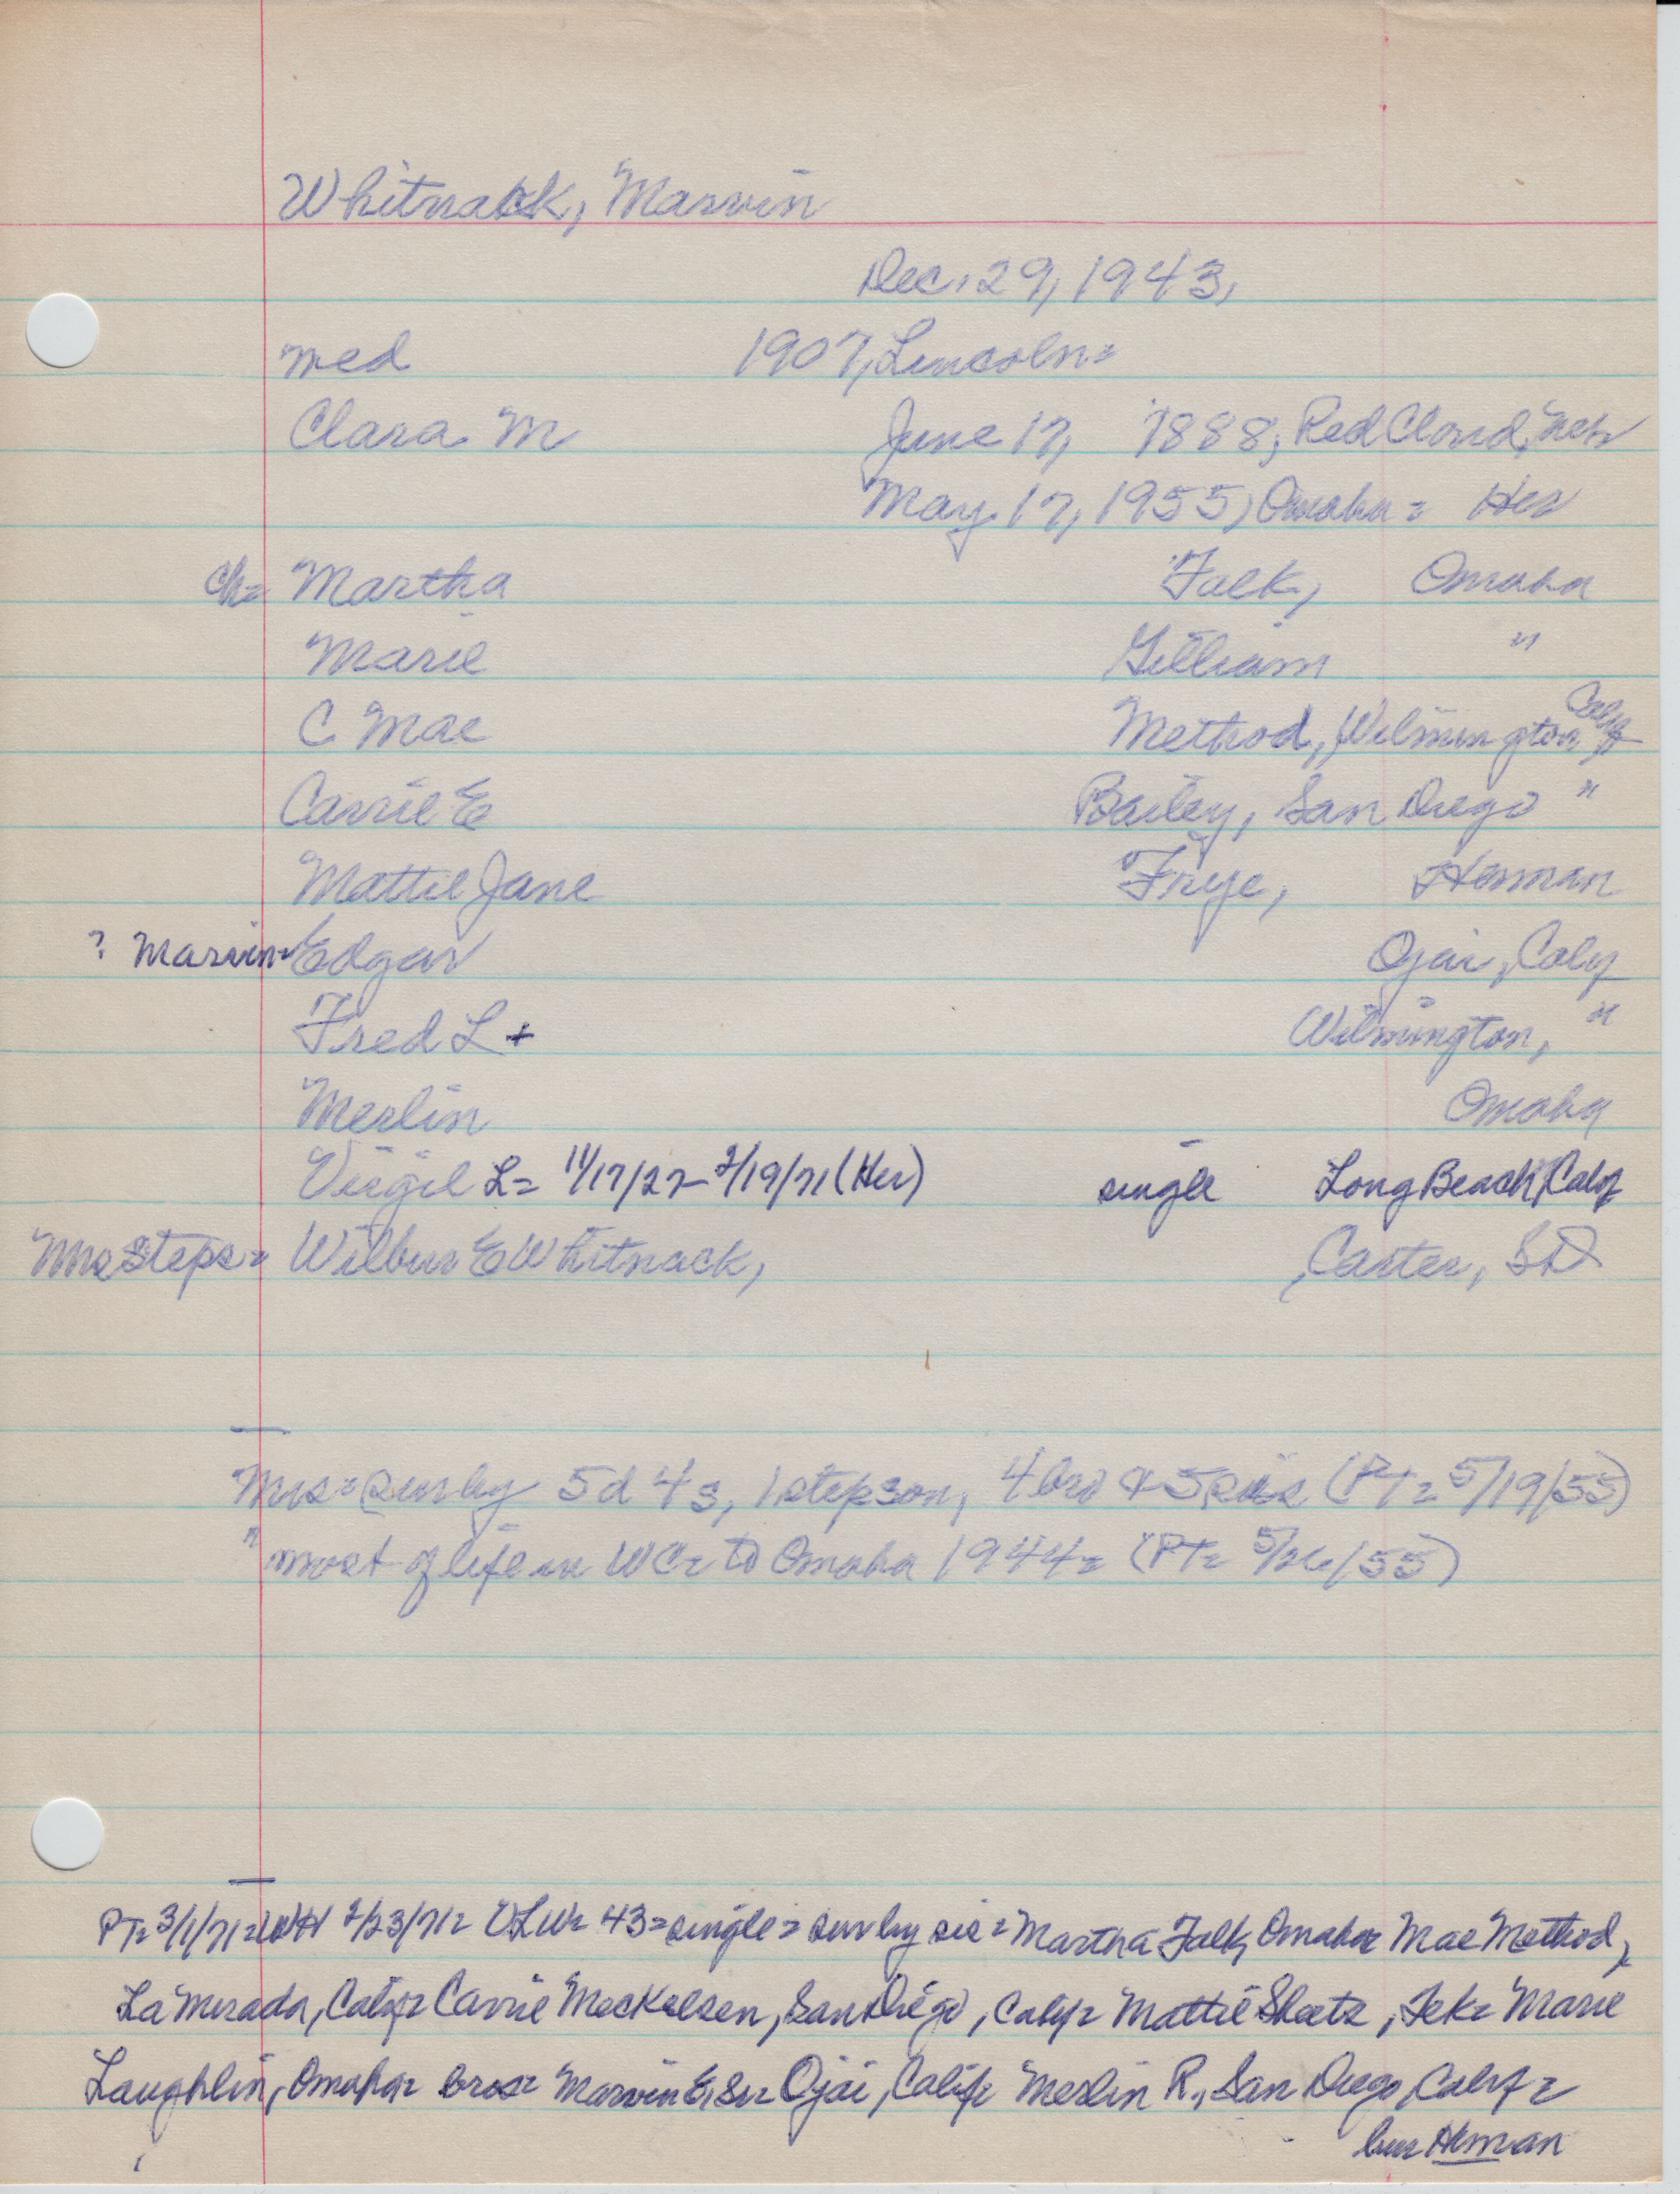 Whitnack, Marvin
Dec. 29, 1943,
wed 1907, Lincoln=
Clara M June 17, 1888, Red Cloud, Neb
May 17, 1955, Omaha = Her
ch= Martha Falk, Omaha
Marie Gilliam "
C Mae Method, Wilmington, Calif
Carrie E Bailey, San Diego "
Mattie Jane Frye, Herman
? Marvin= Edgar Ojai, Calif
Fred L + Wilmington, "
Merlin Omaha
Virgil L= 11/17/27- 2/19/71 (Her) single Long Beach, Calif
Mrs Steps= Wilbur E Whitnack, Carter, SD
Mrs= surby 5d 4s, 1 stepson, 4 bro & 5 sis (PT= 5/19/55)
" most of life in WC= to Omaha 1944= (PT= 5/26/55)
PT= 3/1/71= WH 2/23/71= VLW= 43= single= surby sis= Martha Falk, Omaha= Mae Method,
La Mirada, Calif= Carrie Meckelsen, San Diego, Calif= Mattie Sheets, Tek= Marie
Laughlin, Omaha= bros= Marvin E, Sr= Ojai, Calif= Merlin R., San Diego, Calif=
bur Herman